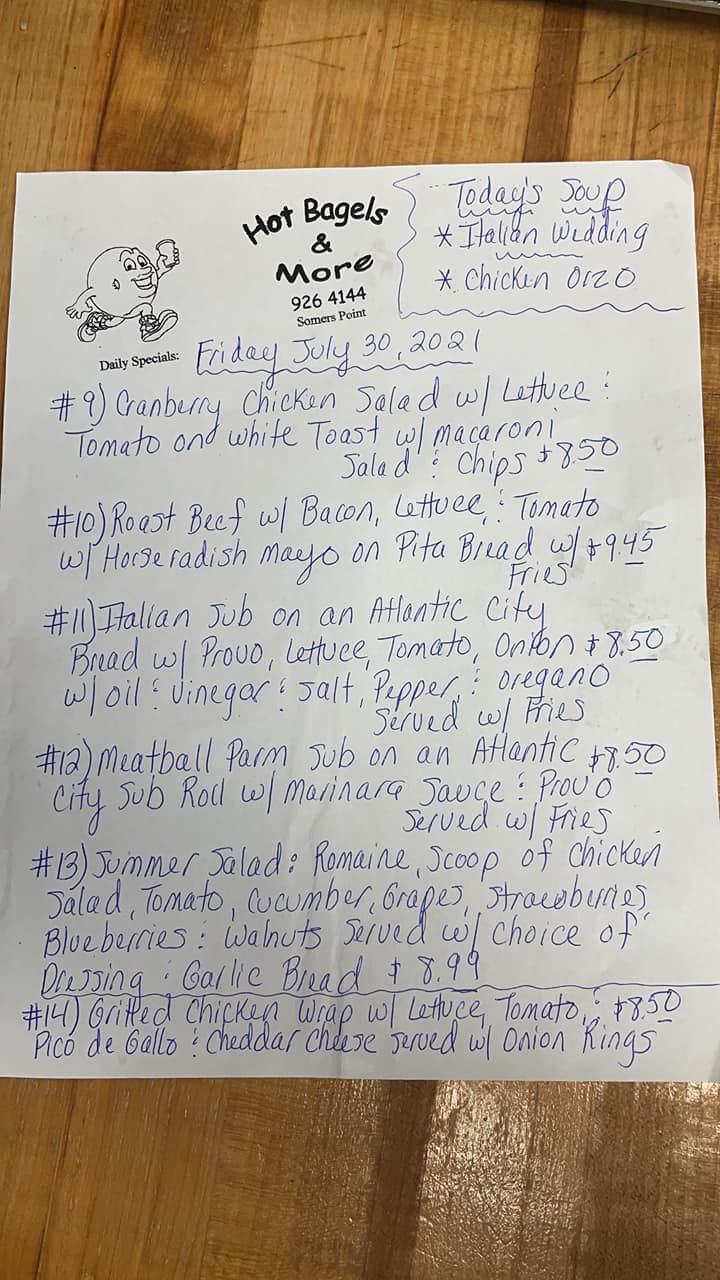 Hot Bagels
&
More
926 4144
Somers Point
Today's Soup
* Italian Wedding
* Chicken Orzo
Daily Specials: Friday July 30, 2021
#9) Cranberry Chicken Salad w/ Lettuce &
Tomato on white Toast w/ macaroni
Salad & Chips $8.50
#10) Roast Beef w/ Bacon, Lettuce, & Tomato
w/ Horseradish mayo on Pita Bread w/ $9.45
Fries
#11) Italian Sub on an Atlantic City
Bread w/ Provo, Lettuce, Tomato, Onion $8.50
w/ oil & vinegar & salt, Pepper, & oregano
Served w/ Fries
#12) Meatball Parm Sub on an Atlantic $8.50
City Sub Roll w/ Marinara Sauce & Provo
Served w/ Fries
#13) Summer Salad: Romaine, Scoop of Chicken
Salad, Tomato, Cucumber, Grapes, Strawberries,
Blueberries & Walnuts Served w/ choice of
Dressing & Garlic Bread $8.99
#14) Grilled Chicken Wrap w/ Lettuce, Tomato, & $8.50
Pico de Gallo & Cheddar Cheese served w/ Onion Rings